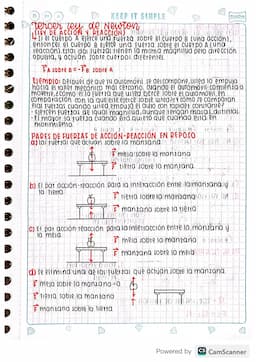 KEEP IT SIMPLE
Tercera ley de Newton
(LEY DE ACCIÓN Y REACCIÓN)
Si el cuerpo A ejerce una fuerza sobre el cuerpo B (una acción),
entonces el cuerpo B ejerce una fuerza sobre el cuerpo A (una
reacción). Estas dos fuerzas tienen la misma magnitud pero dirección
opuesta, y actúan sobre cuerpos diferentes.
F A sobre B = -F B sobre A
Ejemplo: Después de que su automóvil se descompone, usted lo empuja
hacia el taller mecánico más cercano. Cuando el automóvil comienza a
moverse, ¿cómo es la fuerza que usted ejerce sobre el automóvil en
comparación con la que éste ejerce sobre usted? ¿Y cómo se comparan
esas fuerzas cuando usted empuja el auto con rapidez constante?
PARES DE FUERZAS DE ACCIÓN-REACCIÓN EN REPOSO
a) las fuerzas que actúan sobre la manzana
F mesa sobre la manzana
F tierra sobre la manzana
b) El par acción-reacción para la interacción entre la manzana y
la tierra
F tierra sobre la manzana
F manzana sobre la tierra
c) El par acción-reacción para la interacción entre la manzana y
la mesa
F mesa sobre la manzana
F manzana sobre la mesa
d) Se elimina una de las fuerzas que actúan sobre la manzana
F mesa sobre la manzana = 0
F tierra sobre la manzana
F manzana sobre la tierra
Powered by CS CamScanner